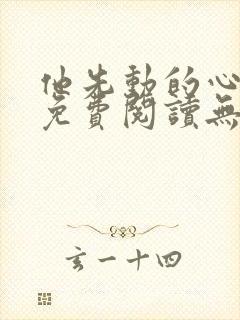 他先動的心
免費閱讀無
玄一十四